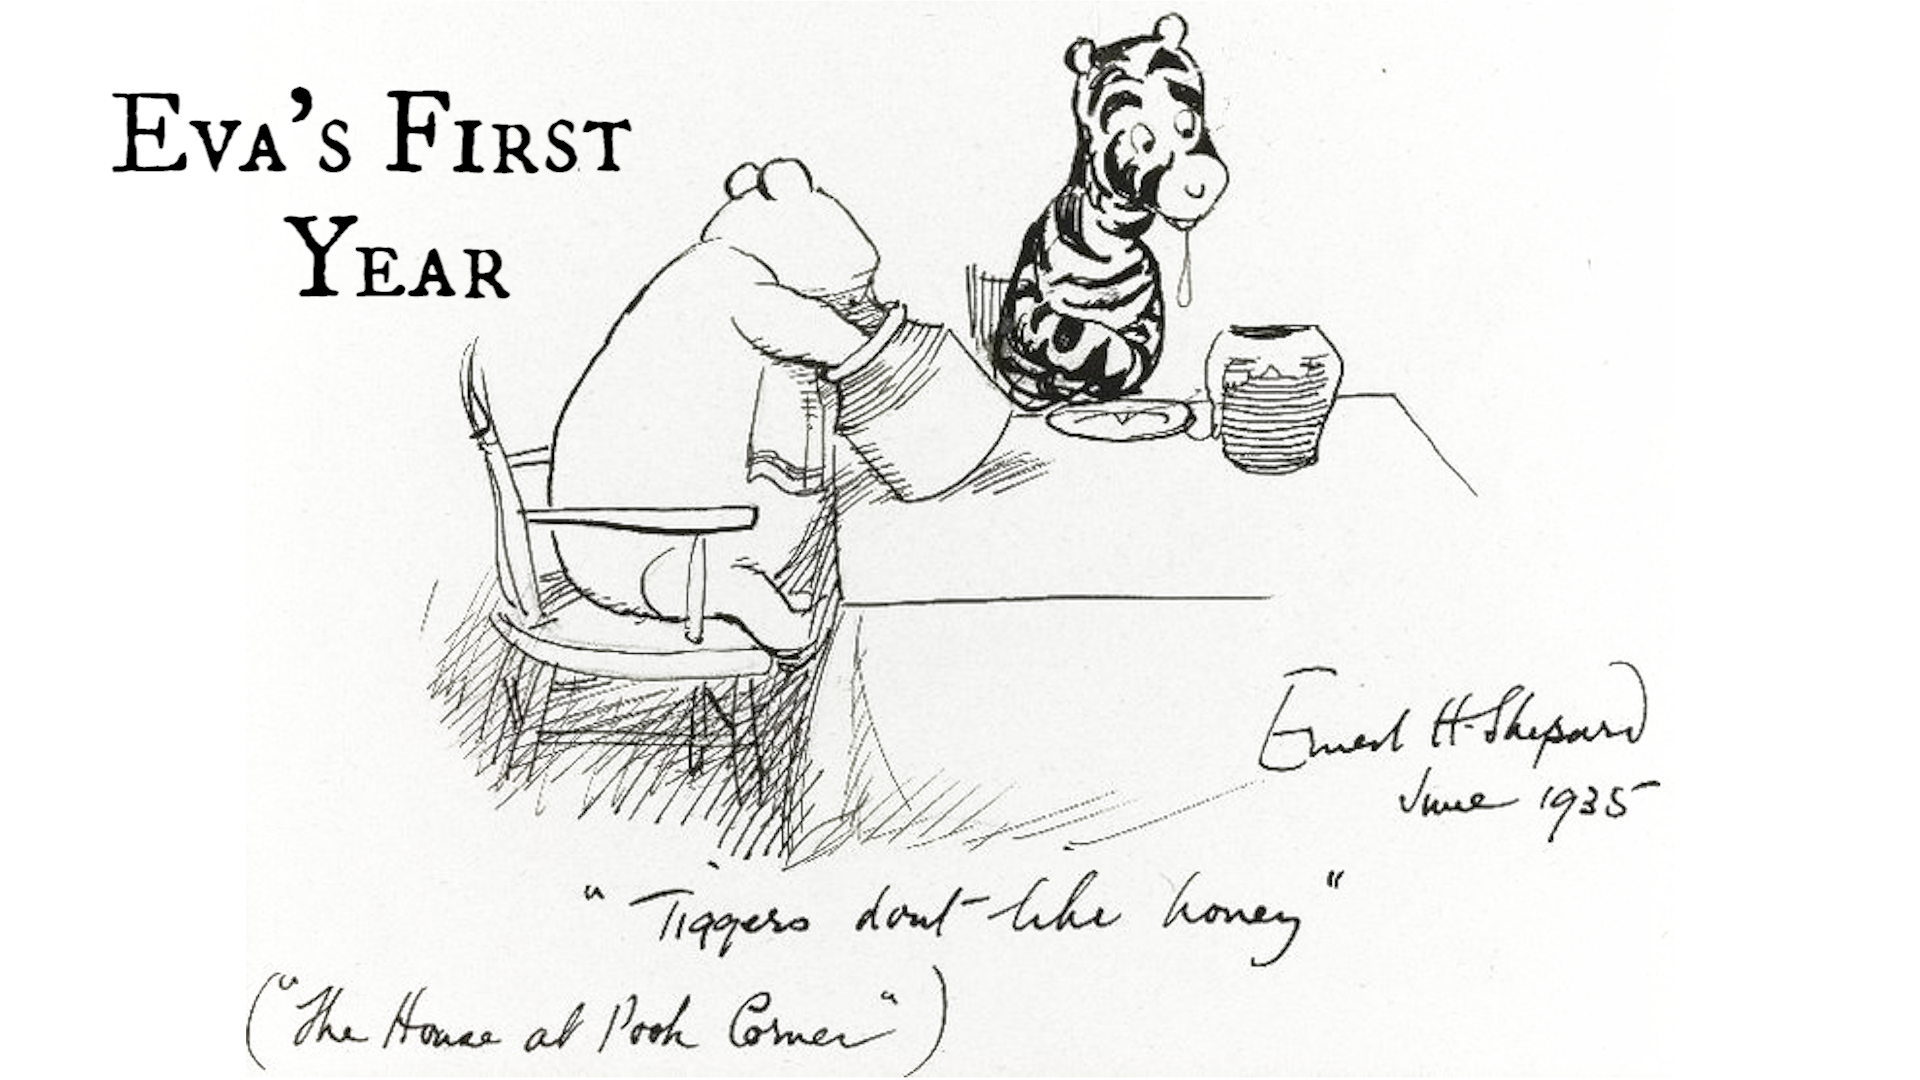 Eva's First
Year
Ernest H. Shepard
June 1935
"Tiggers dont like honey"
("The House at Pooh Corner")